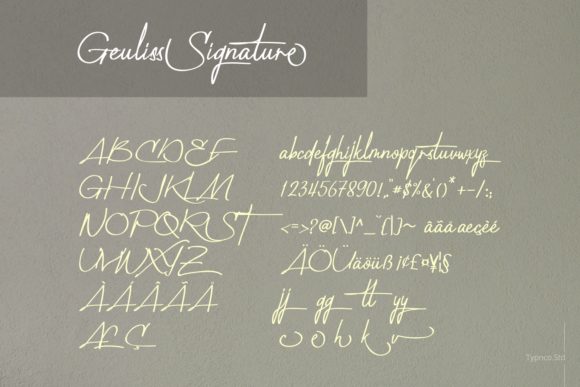 Geuliss Signature
ABCDEF
GHIJKLM
NOPQRST
UVWXYZ
ÀÁÂÃÄÅ
ÆÇ
abcdefghijklmnopqrstuvwxyz
12345678901.,"#$%&'()*+-/:;
<=>?@[\]^_˘{|}~ àáâãäåæçèé
ÄÖÜäöüß¡¢£¤¥¦§
jj gg tt yy
o h k
Typnco.Std